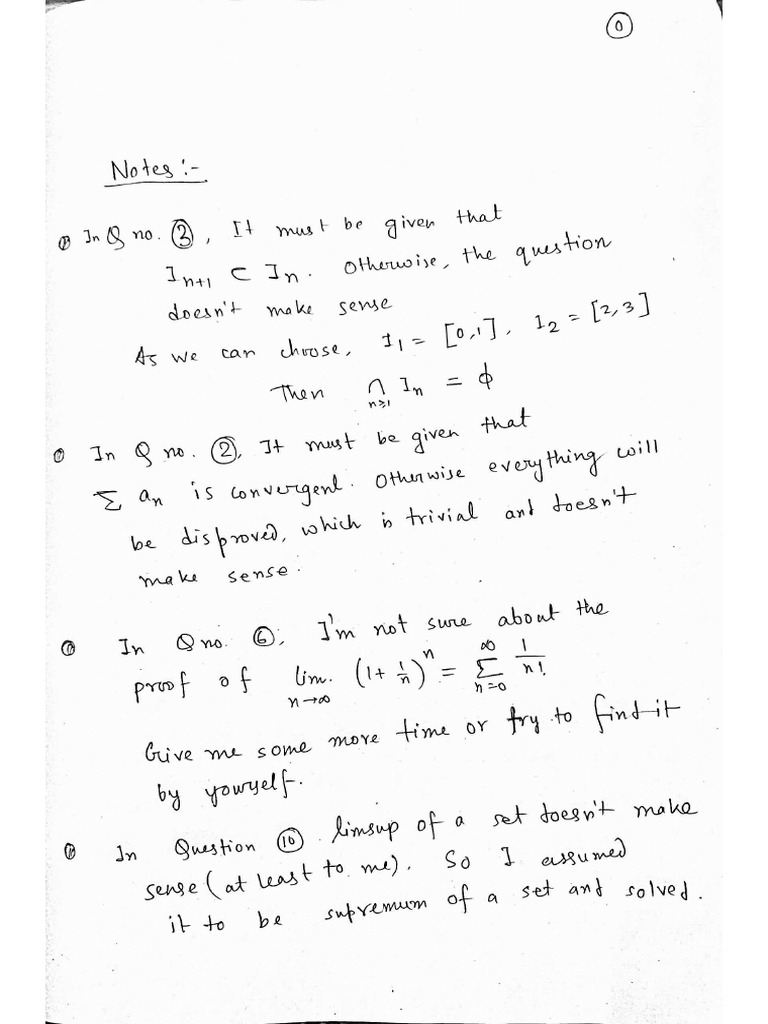 ⓪
Notes :-
In Q no. ③, It must be given that
I_{n+1} ⊂ I_n. Otherwise, the question
doesn't make sense
As we can choose, I_1 = [0,1], I_2 = [2,3]
Then ∩_{n≥1} I_n = ϕ
In Q no. ②, It must be given that
Σ a_n is convergent. Otherwise everything will
be disproved, which is trivial and doesn't
make sense.
In Q no. ⑥, I'm not sure about the
proof of lim_{n→∞} (1+ 1/n)^n = Σ_{n=0}^{∞} 1/n!
Give me some more time or try to find it
by yourself.
In Question ⑩ limsup of a set doesn't make
sense (at least to me). So I assumed
it to be supremum of a set and solved.